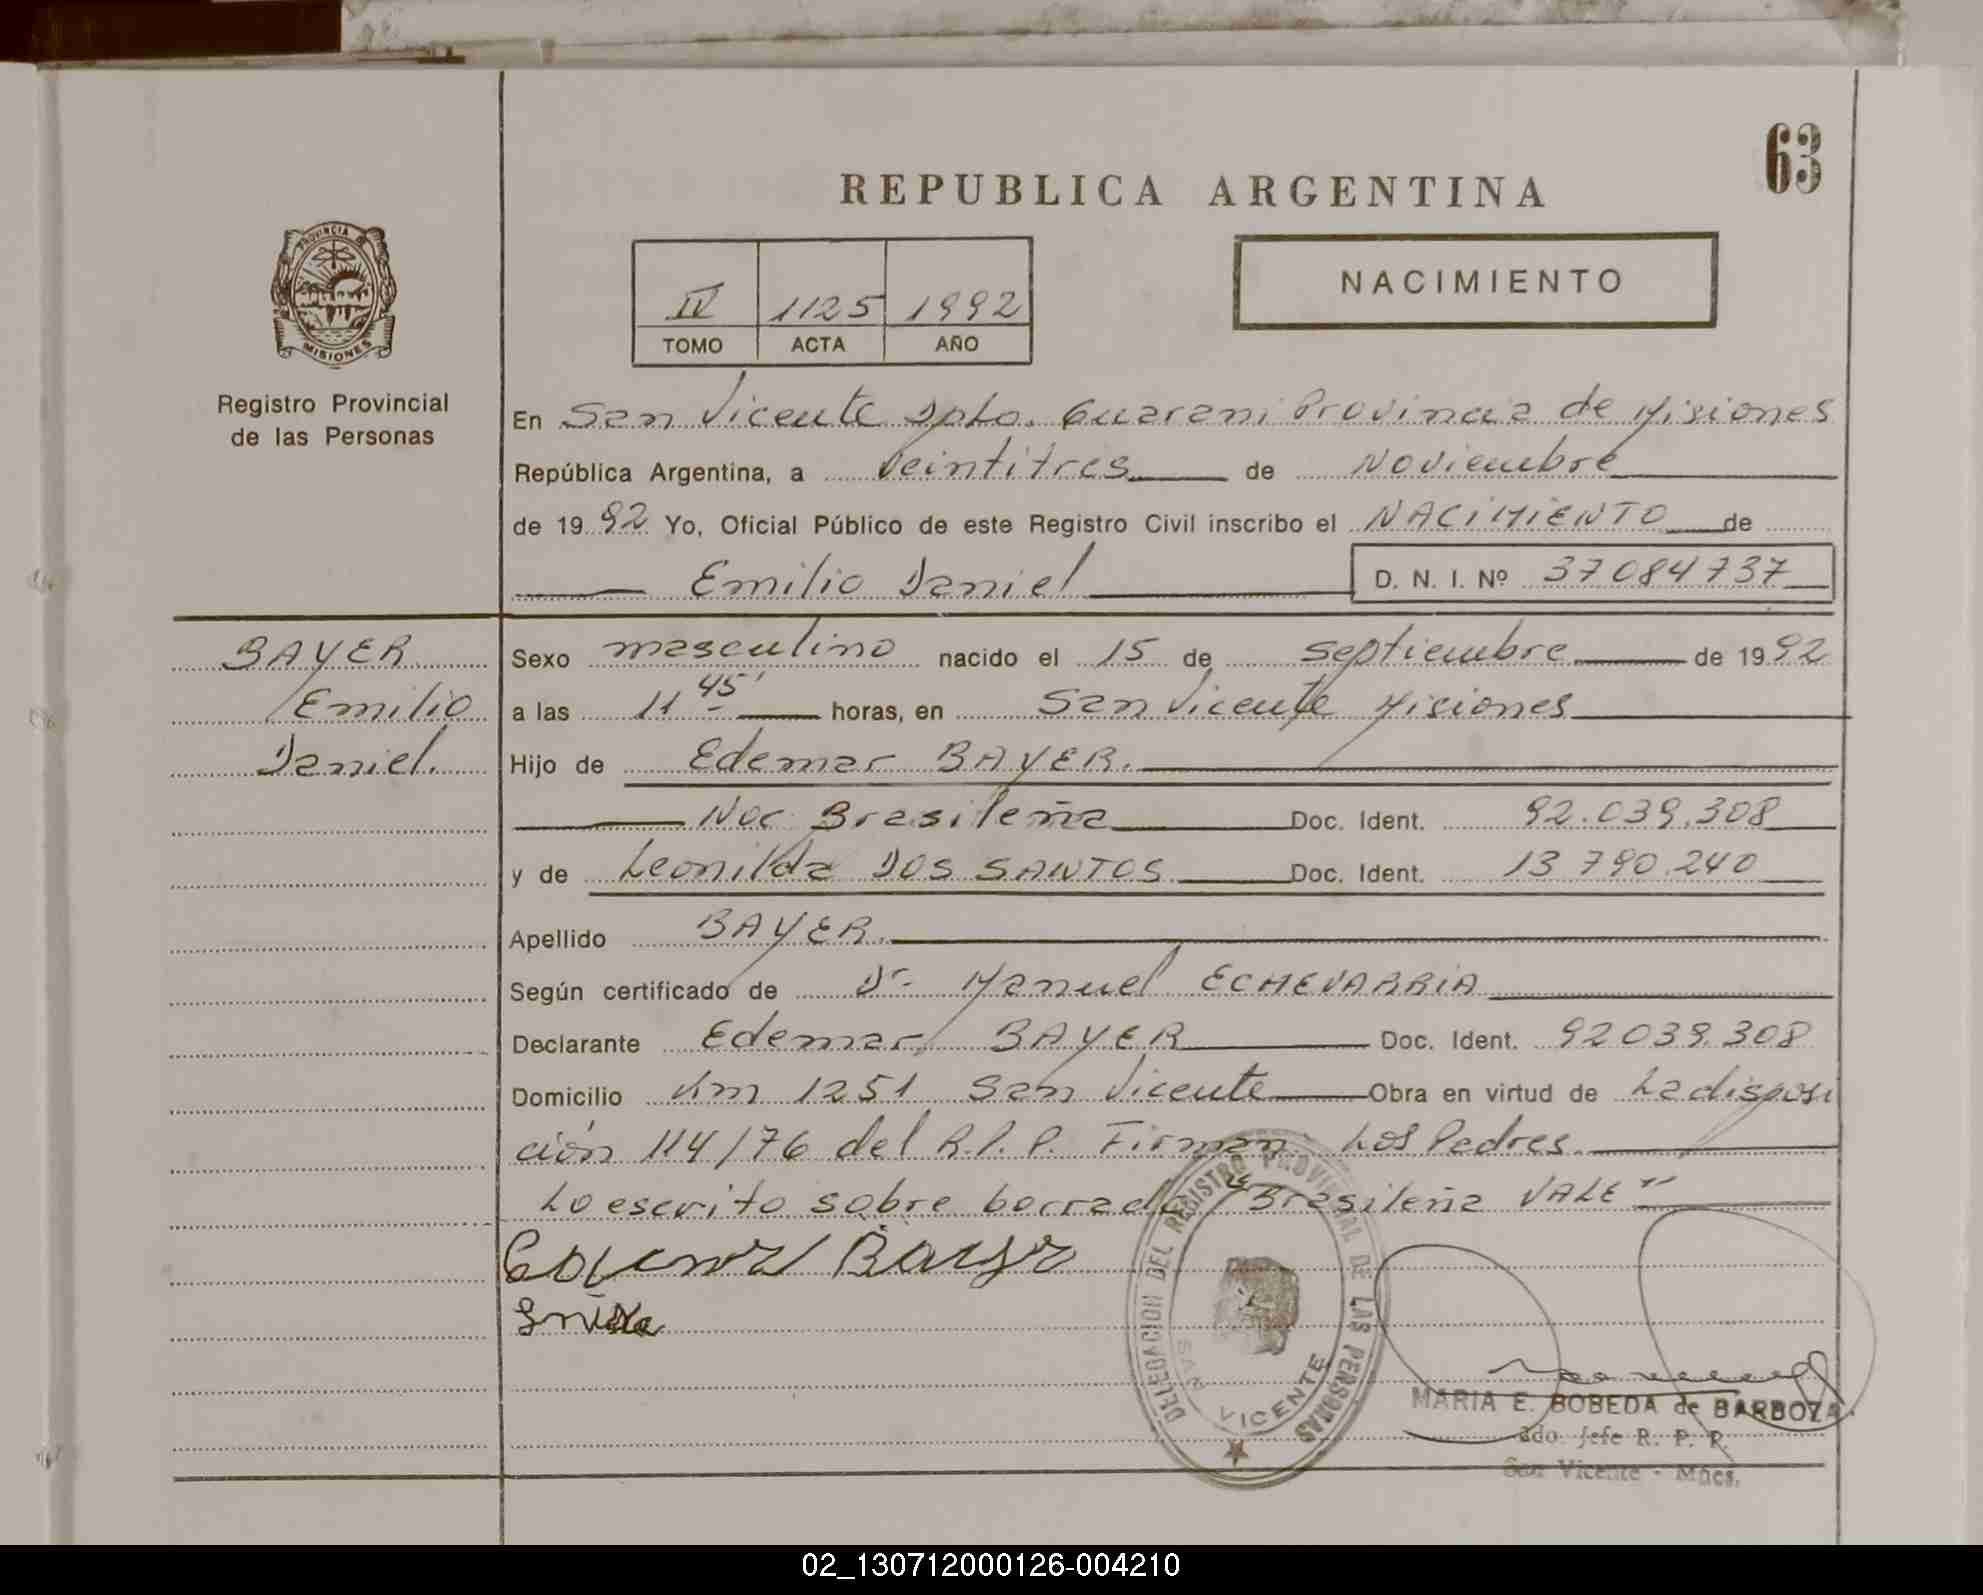 63
REPUBLICA ARGENTINA
PROVINCIA DE
MISIONES
IV 1125 1992
TOMO ACTA AÑO
NACIMIENTO
Registro Provincial
de las Personas
En San Vicente Dpto. Guarani Provincia de Misiones
República Argentina, a veintitres de Noviembre
de 1992 Yo, Oficial Público de este Registro Civil inscribo el NACIMIENTO de
Emilio Daniel D. N. I. Nº 37084737
BAYER
Emilio
Daniel.
Sexo masculino nacido el 15 de septiembre de 1992
a las 11 45' horas, en San Vicente Misiones
Hijo de Edemar BAYER.
Nac. Brasileña Doc. Ident. 92.039.308
y de Leonilda DOS SANTOS Doc. Ident. 13 790.240
Apellido BAYER.
Según certificado de Dr. Manuel ECHEVARRIA
Declarante Edemar BAYER Doc. Ident. 92039.308
Domicilio Km 1251 San Vicente Obra en virtud de La disposi
ción 114/76 del R.P.P. Firman Los Padres.
Lo escrito sobre borrado "Brasileña VALE"
DELEGACION DEL REGISTRO PROVINCIAL DE LAS PERSONAS
SAN VICENTE
MARIA E. BOBEDA de BARBOZA
2do. Jefe R. P. P.
San Vicente - Mnes.
02_130712000126-004210